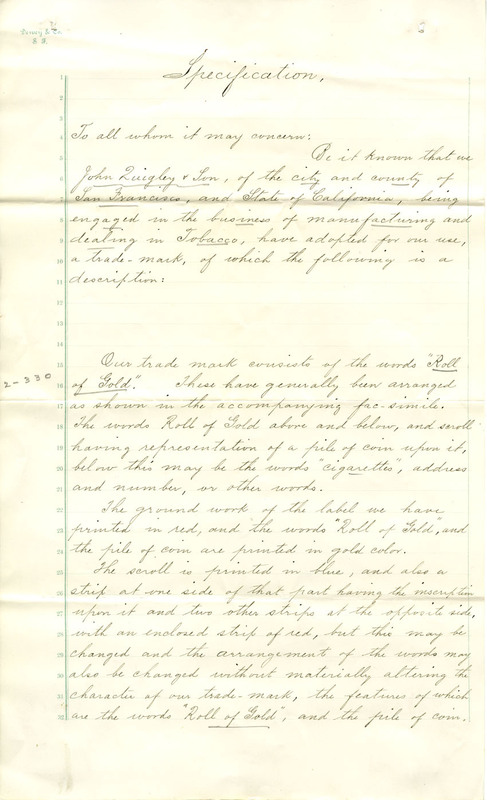 Dewey & Co.
S. F.
Specification.
To all whom it may concern:
Be it known that we
John Quigley & Son, of the city and county of
San Francisco, and State of California, being
engaged in the business of manufacturing and
dealing in Tobacco, have adopted for our use,
a trade-mark, of which the following is a
description:
Our trade mark consists of the words "Roll
2-330
of Gold". These have generally been arranged
as shown in the accompanying fac-simile.
The words Roll of Gold above and below, and scroll
having representation of a pile of coin upon it,
below this may be the words "cigarettes", address
and number, or other words.
The ground work of the label we have
printed in red, and the words "Roll of Gold", and
the pile of coin are printed in gold color.
The scroll is printed in blue, and also a
strip at one side of that part having the inscription
upon it and two other strips at the opposite side,
with an enclosed strip of red, but this may be
changed and the arrangement of the words may
also be changed without materially altering the
character of our trade-mark, the features of which
are the words "Roll of Gold", and the pile of coin.
1
2
3
4
5
6
7
8
9
10
11
12
13
14
15
16
17
18
19
20
21
22
23
24
25
26
27
28
29
30
31
32